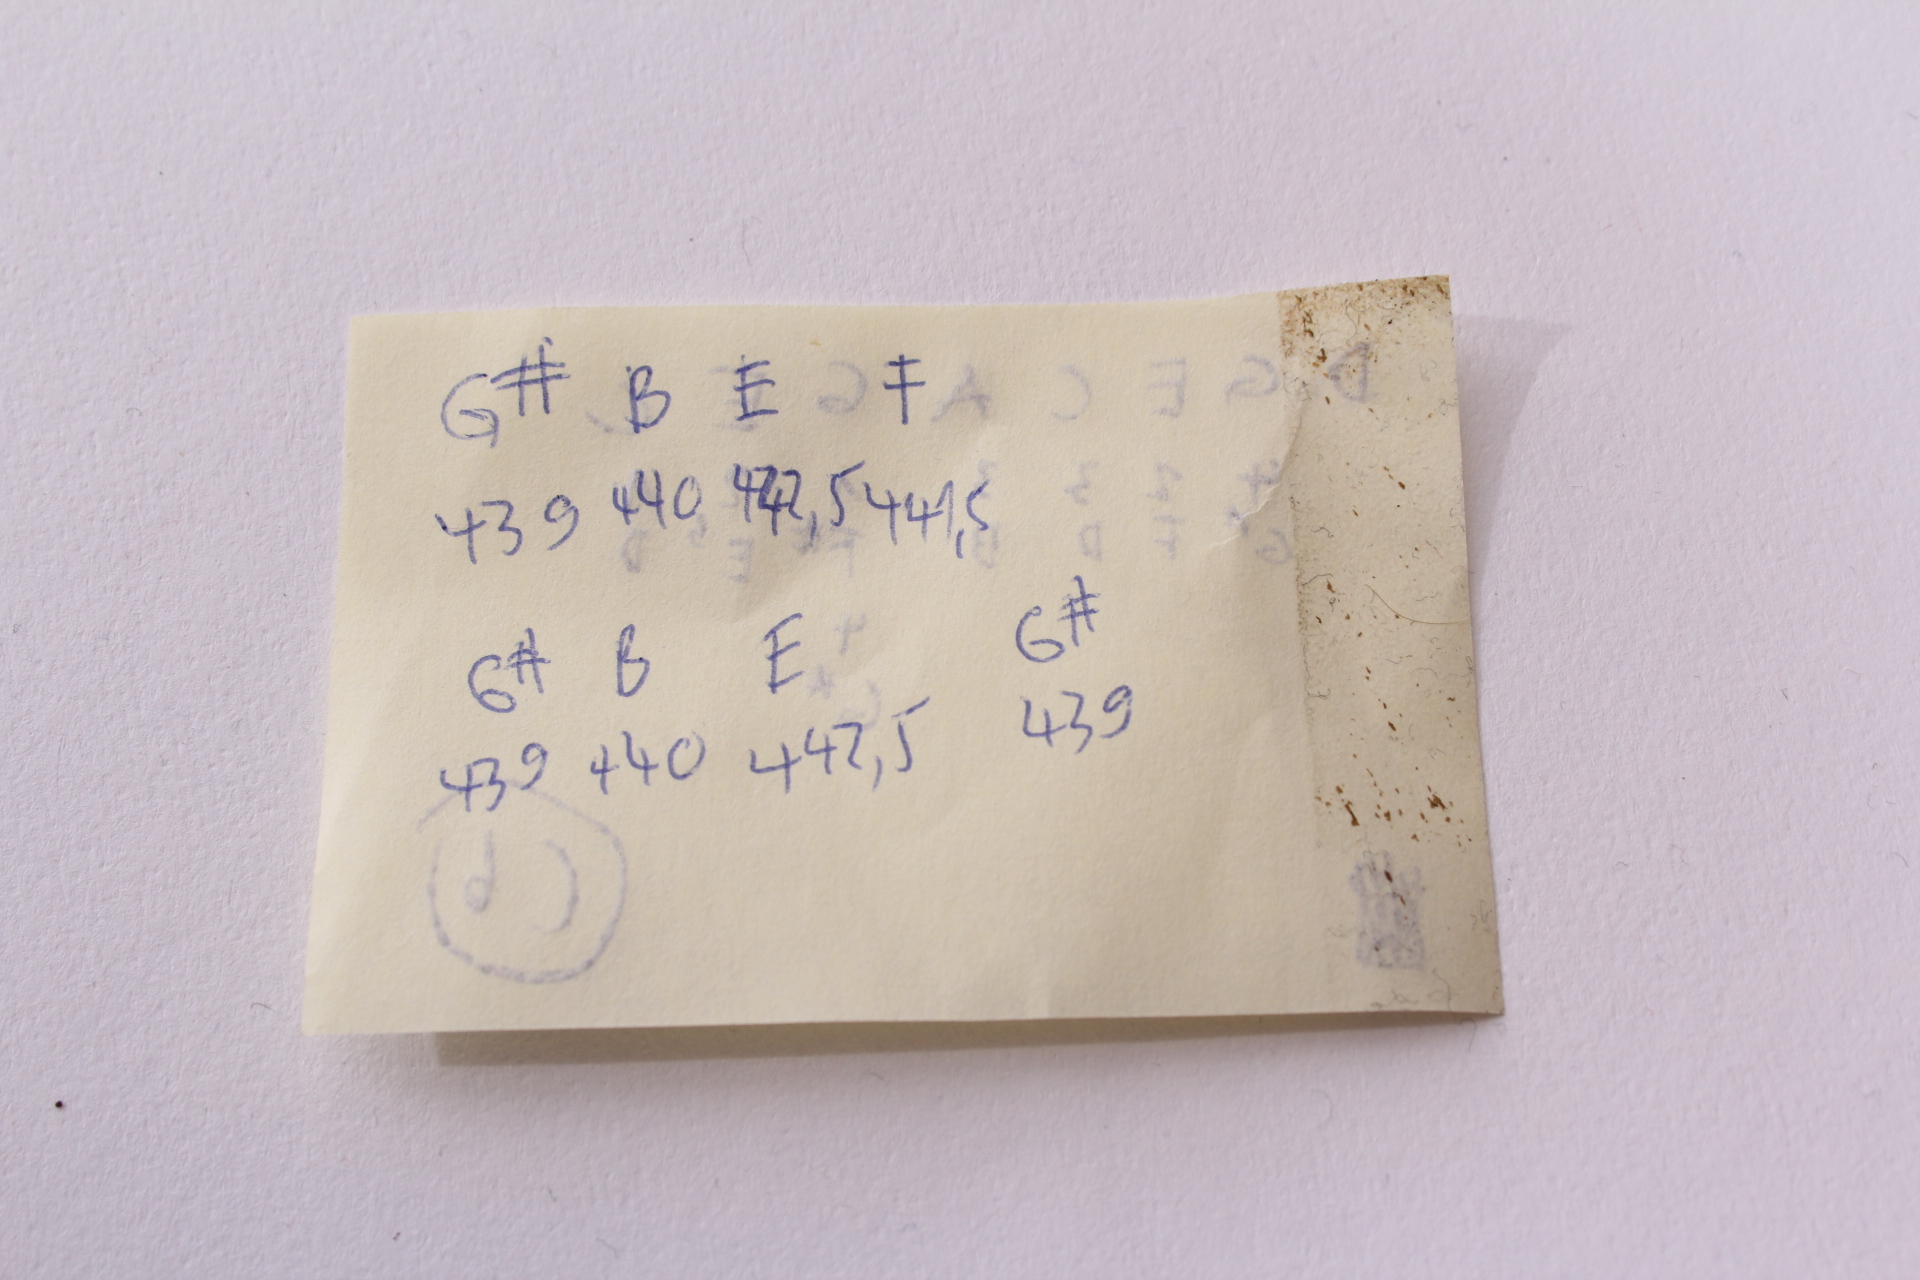 G# B E F
439 440 442,5 441,5
G# B E G#
439 440 442,5 439